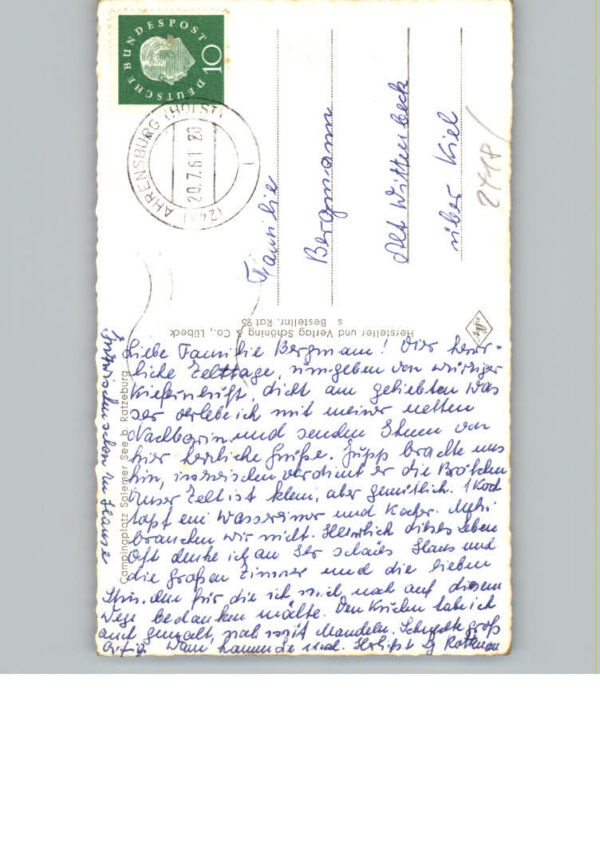 DEUTSCHE BUNDESPOST
10
(24a) AHRENSBURG (HOLST)
20.7.61 20
Familie
Bergmann
Alt Wittenbeck
über Kiel
2418/
Hersteller und Verlag Schöning & Co., Lübeck
s Bestellnr. Rat 95
Campingplatz Salemer See b. Ratzeburg
Liebe Familie Bergmann! Vier herr-
liche Zelttage, umgeben von würziger
Kiefernluft, dicht am geliebten Was
ser verlebe ich mit meiner netten
Nachbarin und senden Ihnen von
hier herzliche Grüße. Jupp brachte uns
hin, inzwischen verdient er die Brötchen
Unser Zelt ist klein, aber gemütlich. 1 Koch
topf ein Wassereimer und Kocher. Mehr
brauchen wir nicht. Herrlich dieses Leben
Oft denke ich an Ihr schönes Haus und
die großen Zimmer und die lieben
für die ich mich noch auf diesem
Wege bedanken möchte. Den Kuchen habe ich
auch gemacht, mit Mandeln. Schmeckte groß
artig. Wann kommen Sie mal. Herzlichst
Inzwischen schon zu Hause